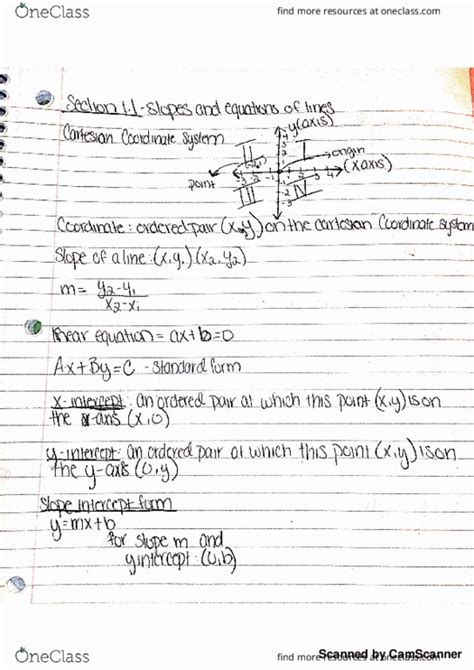 OneClass
find more resources at oneclass.com
Section 1.1 - Slopes and equations of lines
Cartesian Coordinate System
y(axis)
II
I
origin
(xaxis)
point
III
IV
Coordinate: ordered pair (x,y) on the cartesian coordinate system
Slope of a line: (x,y,) (x2, y2)
m = y2-y1
x2-x1
linear equation = ax+b=0
Ax+By=C - Standard form
x-intercept: an ordered pair at which this point (x,y) is on
the x-axis (x,0)
y-intercept: an ordered pair at which this point (x,y) is on
the y-axis (0,y)
Slope intercept form
y=mx+b
for slope m and
y intercept (0,b)
OneClass
find more
Scanned by CamScanner